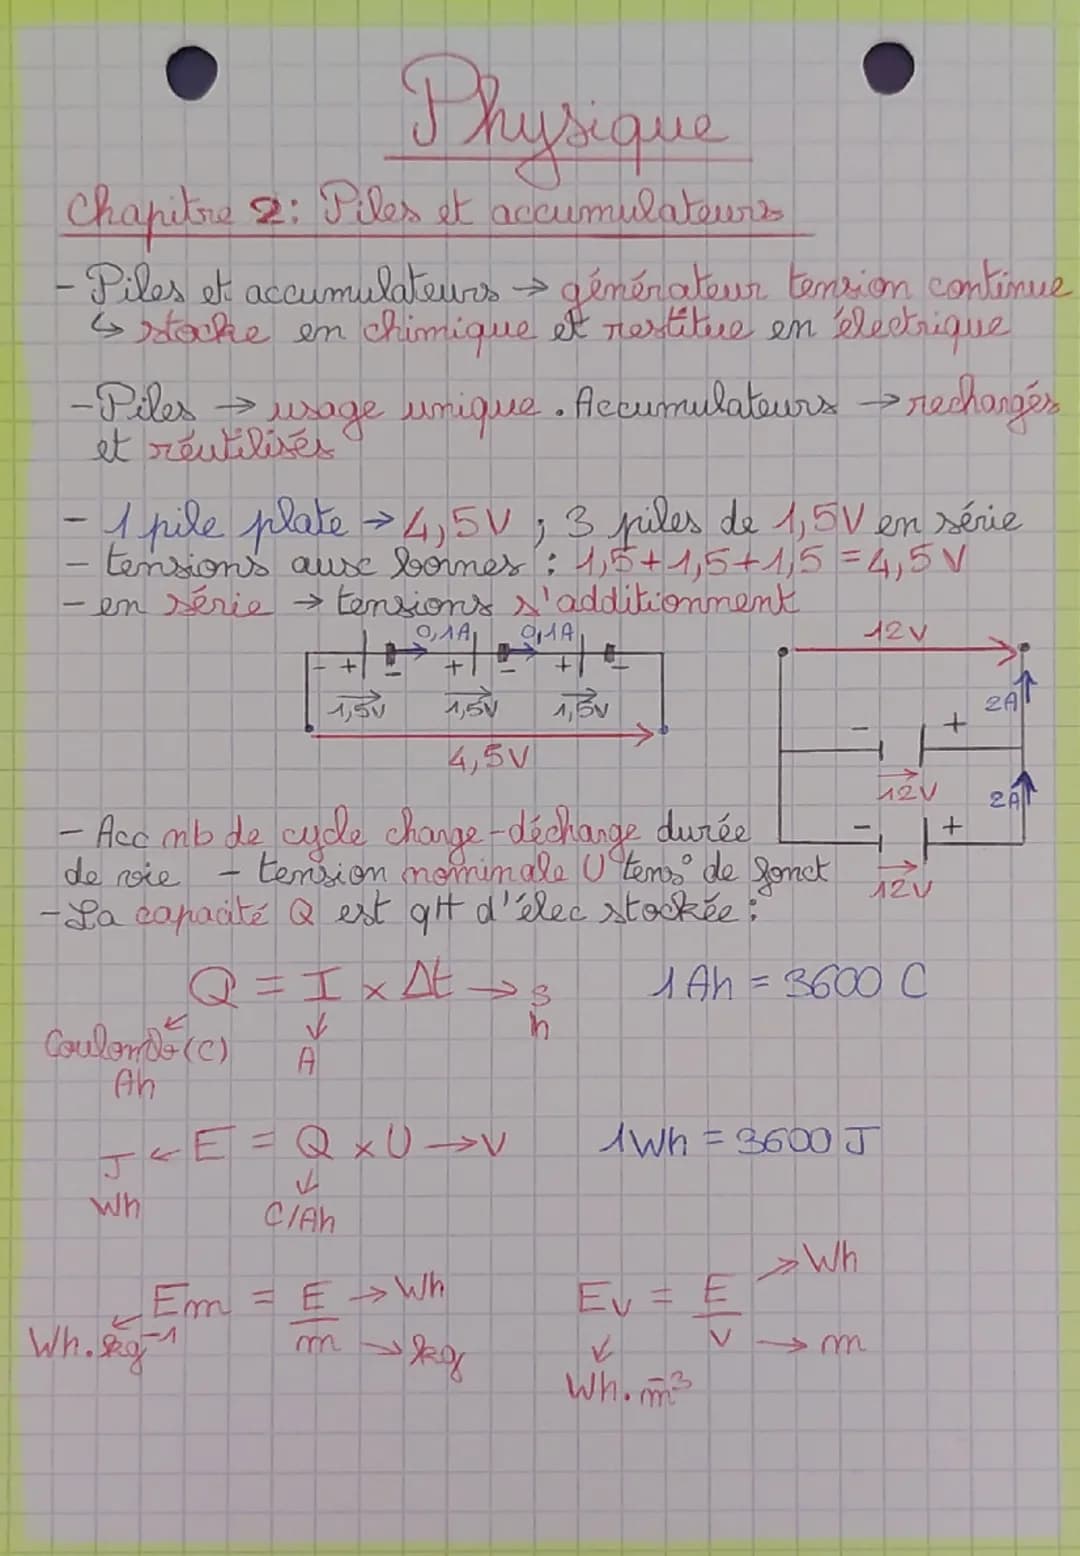 Physique
Chapitre 2: Piles et accumulateurs
- Piles et accumulateurs → générateur tension continue
↳ stocke en chimique et restitue en électrique
- Piles → usage unique. Accumulateurs → rechargés
et réutilisés
- 1 pile plate → 4,5V ; 3 piles de 1,5V en série
- tensions aux bornes : 1,5+1,5+1,5 = 4,5 V
- en série → tensions s'additionnent
0,1A 0,1A
- + - + - + -
1,5V 1,5V 1,5V
4,5V
12V
2A
- +
12V
2A
- +
12V
- Acc nb de cycle charge-décharge durée
de vie - tension nominale U tens° de fonct
- La capacité Q est qtt d'élec stockée :
Q = I × Δt → s
h
Coulomb (C)
Ah
A
1 Ah = 3600 C
J ← E = Q × U → V
Wh
C/Ah
1Wh = 3600 J
Em = E → Wh
m → kg
Wh.kg⁻¹
Ev = E → Wh
V → m
Wh.m⁻³